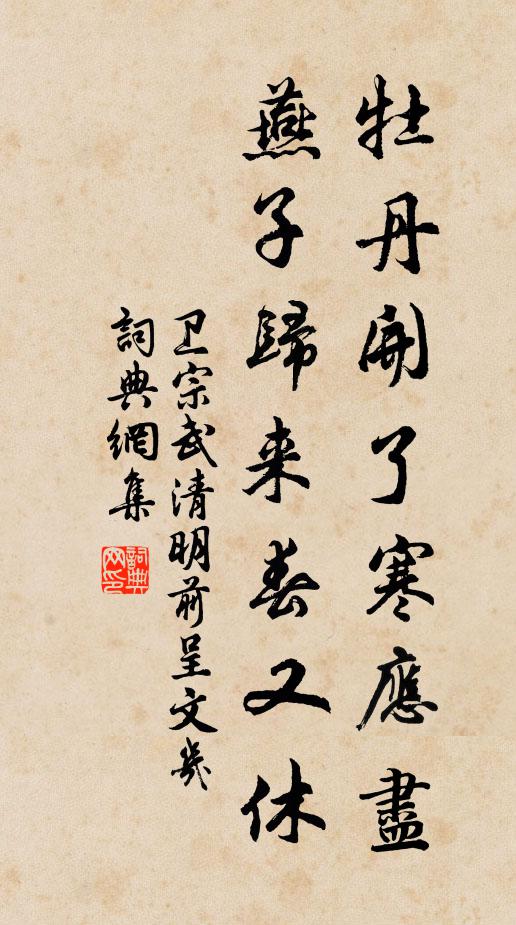 牡丹開了寒應盡
燕子歸来春又休
卫宗武清明前呈文幾
詞典網集
詞典网印